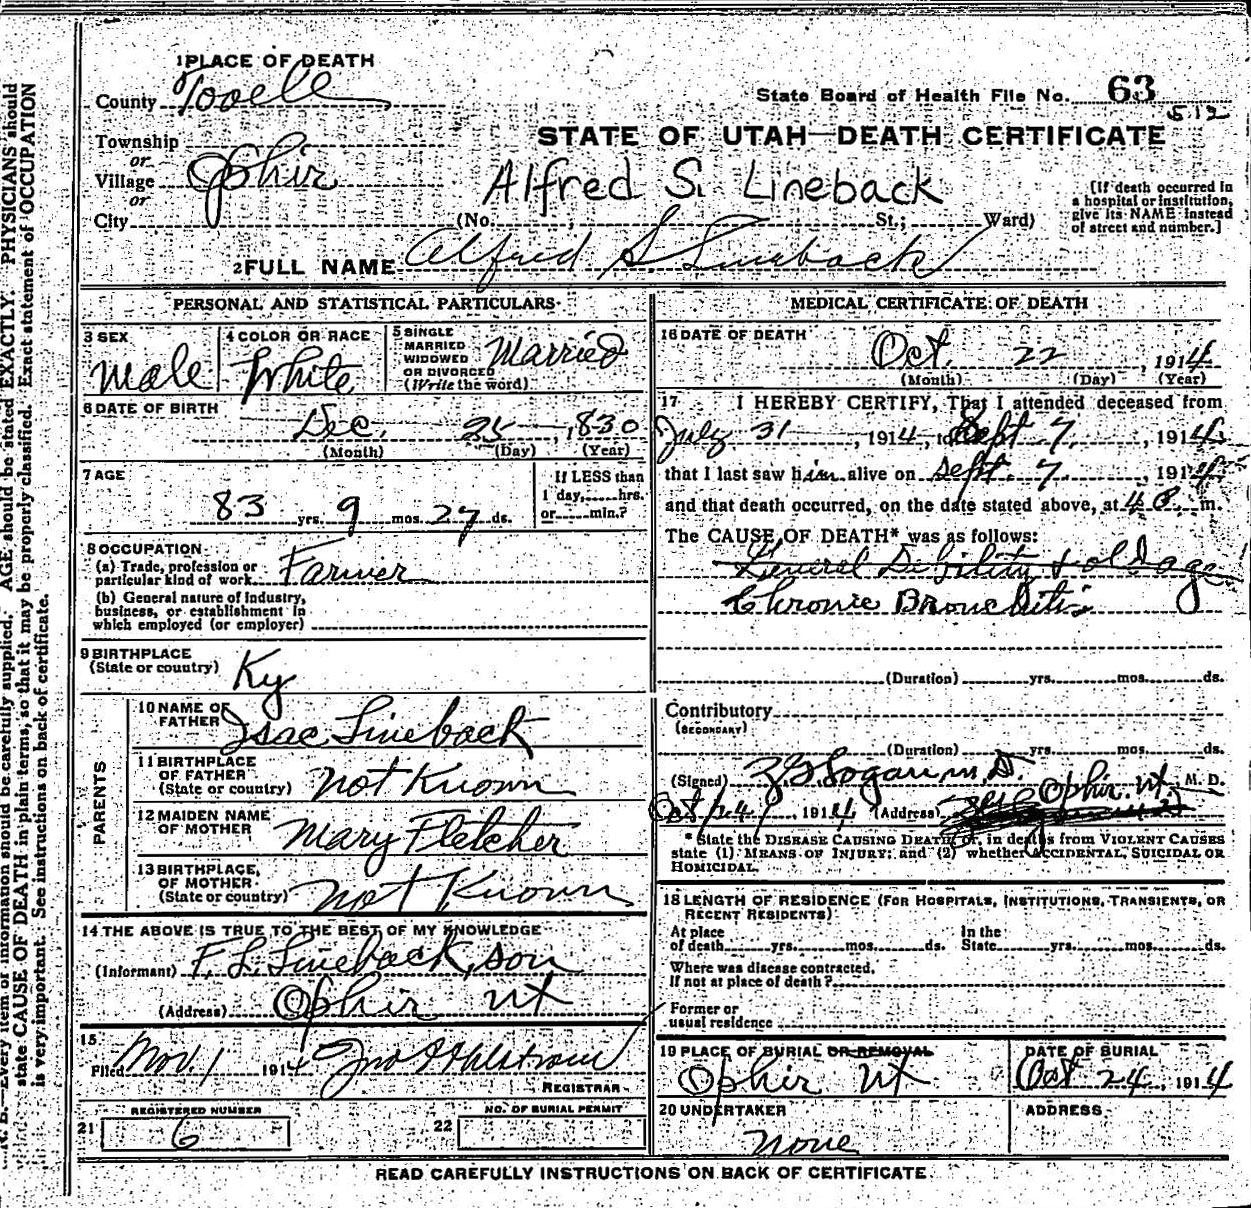 1 PLACE OF DEATH
County Tooele
State Board of Health File No. 63
512
Township
or
Village Ophir
or
City
STATE OF UTAH—DEATH CERTIFICATE
Alfred S. Lineback
(No. St.; Ward)
[If death occurred in
a hospital or institution,
give its NAME instead
of street and number.]
2 FULL NAME Alfred S. Lineback
PERSONAL AND STATISTICAL PARTICULARS
3 SEX
Male
4 COLOR OR RACE
White
5 SINGLE
MARRIED
WIDOWED
OR DIVORCED
(Write the word)
Married
6 DATE OF BIRTH
Dec. 25, 1830
(Month) (Day) (Year)
7 AGE
83 yrs. 9 mos. 27 ds.
If LESS than
1 day, hrs.
or min.?
8 OCCUPATION
(a) Trade, profession or
particular kind of work Farmer
(b) General nature of industry,
business, or establishment in
which employed (or employer)
9 BIRTHPLACE
(State or country) Ky
PARENTS
10 NAME OF
FATHER Isac Lineback
11 BIRTHPLACE
OF FATHER
(State or country) Not Known
12 MAIDEN NAME
OF MOTHER Mary Fletcher
13 BIRTHPLACE,
OF MOTHER
(State or country) Not Known
14 THE ABOVE IS TRUE TO THE BEST OF MY KNOWLEDGE
(Informant) F. L. Lineback, son
(Address) Ophir Ut
15
Filed Nov. 1 1914 Jno Ahlstrom
REGISTRAR
REGISTERED NUMBER
21 6
NO. OF BURIAL PERMIT
22
MEDICAL CERTIFICATE OF DEATH
16 DATE OF DEATH
Oct. 22, 1914
(Month) (Day) (Year)
17 I HEREBY CERTIFY, That I attended deceased from
July 31, 1914, to Sept 7, 1914,
that I last saw him alive on Sept. 7, 1914,
and that death occurred, on the date stated above, at 4 m.
The CAUSE OF DEATH* was as follows:
General Debility & old age
Chronic Bronchitis
(Duration) yrs. mos. ds.
Contributory
(SECONDARY)
(Duration) yrs. mos. ds.
(Signed) Logan M.D. M. D.
Oct 24, 1914 (Address) Ophir Ut.
* State the DISEASE CAUSING DEATH, or, in deaths from VIOLENT CAUSES
state (1) MEANS OF INJURY; and (2) whether ACCIDENTAL, SUICIDAL OR
HOMICIDAL.
18 LENGTH OF RESIDENCE (FOR HOSPITALS, INSTITUTIONS, TRANSIENTS, OR
RECENT RESIDENTS)
At place
of death yrs. mos. ds.
In the
State yrs. mos. ds.
Where was disease contracted,
If not at place of death?
Former or
usual residence
19 PLACE OF BURIAL OR REMOVAL
Ophir Ut
DATE OF BURIAL
Oct 24, 1914
20 UNDERTAKER
None
ADDRESS
READ CAREFULLY INSTRUCTIONS ON BACK OF CERTIFICATE.
B.—Every item of information should be carefully supplied. AGE should be stated EXACTLY. PHYSICIANS should
state CAUSE OF DEATH in plain terms, so that it may be properly classified. Exact statement of OCCUPATION
is very important. See instructions on back of certificate.